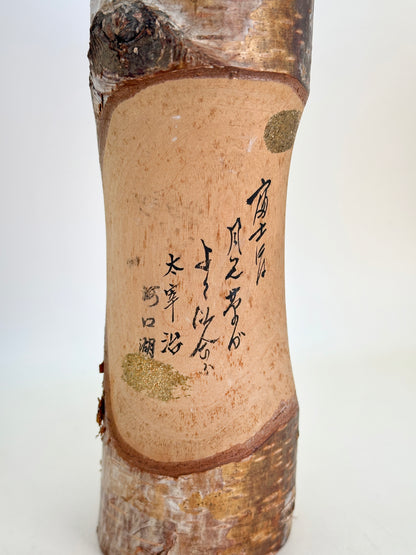 富士には
月見草が
よく似合ふ
太宰治
河口湖